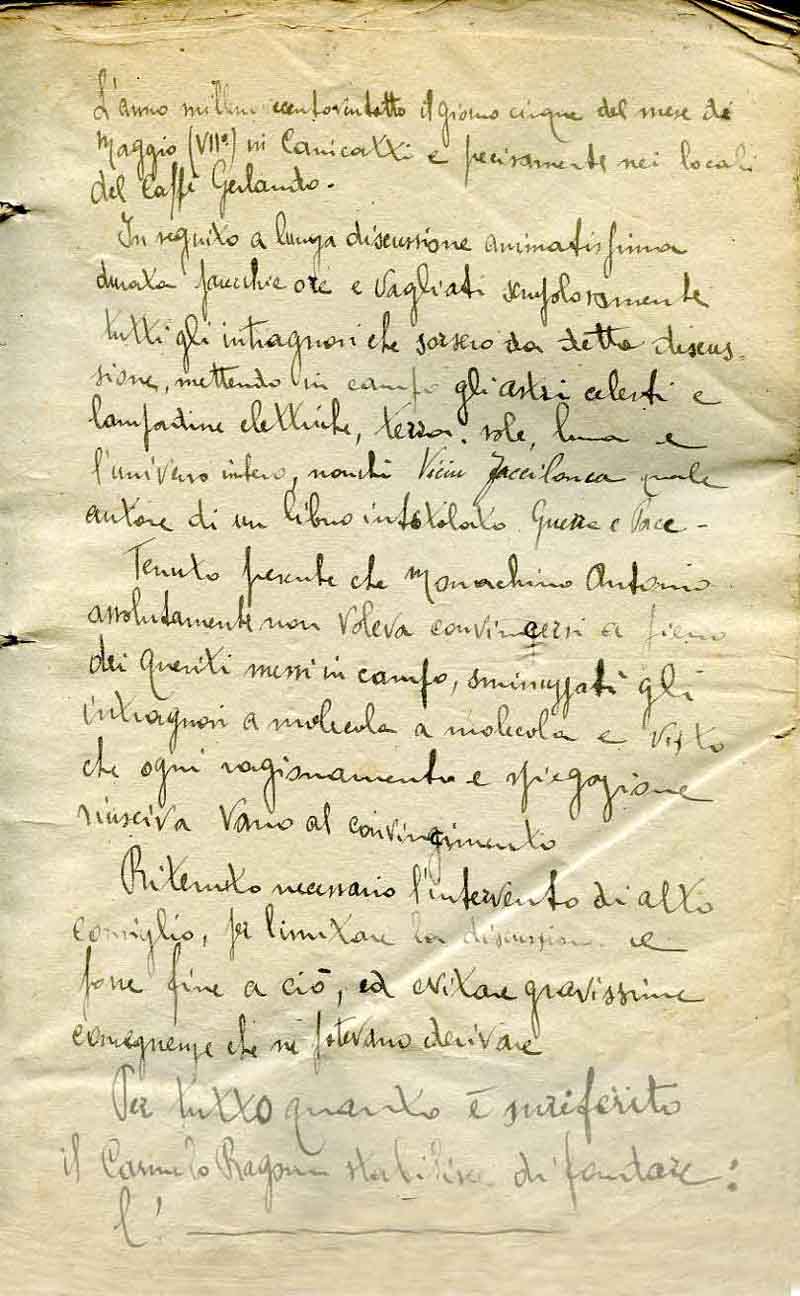 L'anno mille ecentoventotto il giorno cinque del mese di
Maggio (VIIº) in Canicatti e precisamente nei locali
del Caffè Gerlando -
In seguito a lunga discussione animatissima
durata parecchie ore e vagliati scrupolosamente
tutti gli intragnori che sorsero da detta discus-
sione, mettendo in campo gli astri celesti e
lampadine elettriche, terra, sole, luna e
l'universo intero, nonchè quale
autore di un libro intitolato Guerra e Pace -
Tenuto presente che Monachino Antonio
assolutamente non voleva convincersi a pieno
dei quesiti messi in campo, sminuzzati gli
intragnori a molecola a molecola e visto
che ogni ragionamento e spiegazione
riusciva vano al convincimento
Ritenuto necessario l'intervento di alto
consiglio, per limitare la discussione e
porre fine a ciò, ed evitare gravissime
conseguenze che ne potevano derivare
Per tutto quanto è suriferito
il Carmelo Ragona stabilisce di fondare:
L'